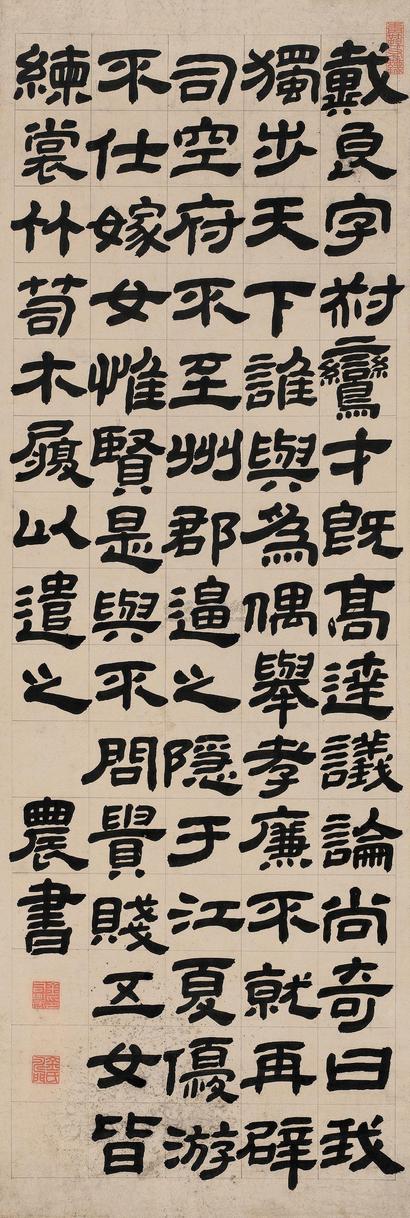 戴良字叔鸞才既高達議論尚奇曰我
獨步天下誰與為偶舉孝廉不就再辟
司空府不至州郡逼之隱于江夏優游
不仕嫁女惟賢是與不問貴賤五女皆
練裳竹笥木屐以遣之 農書